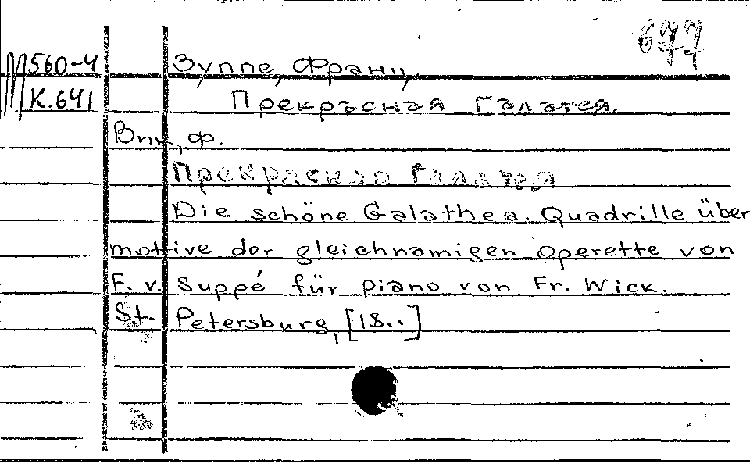 677
М560-4 Зуппе, Франц,
К.641 Прекрасная Галатея.
Вик, Ф.
Прекрасная Галатея
Die schöne Galathea. Quadrille über
motive der gleichnamigen operette von
F. v. Suppé für piano von Fr. Wick.
St. Petersburg, [18..]